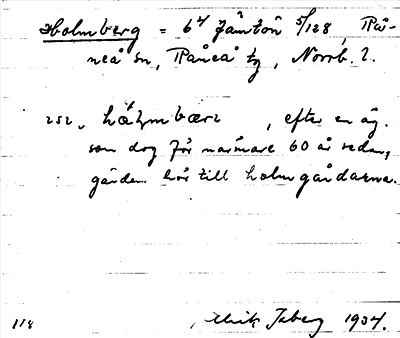 Holmberg = 6⁴ Jämtön 5/128, Rå-
neå sn, Råneå tg, Norrb. l.
252. hå̀ḷmbærs, efter en äg.
som dog för närmare 60 år sedan,
gården hör till holmgårdarna.
118 Ulrik Isberg 1934.